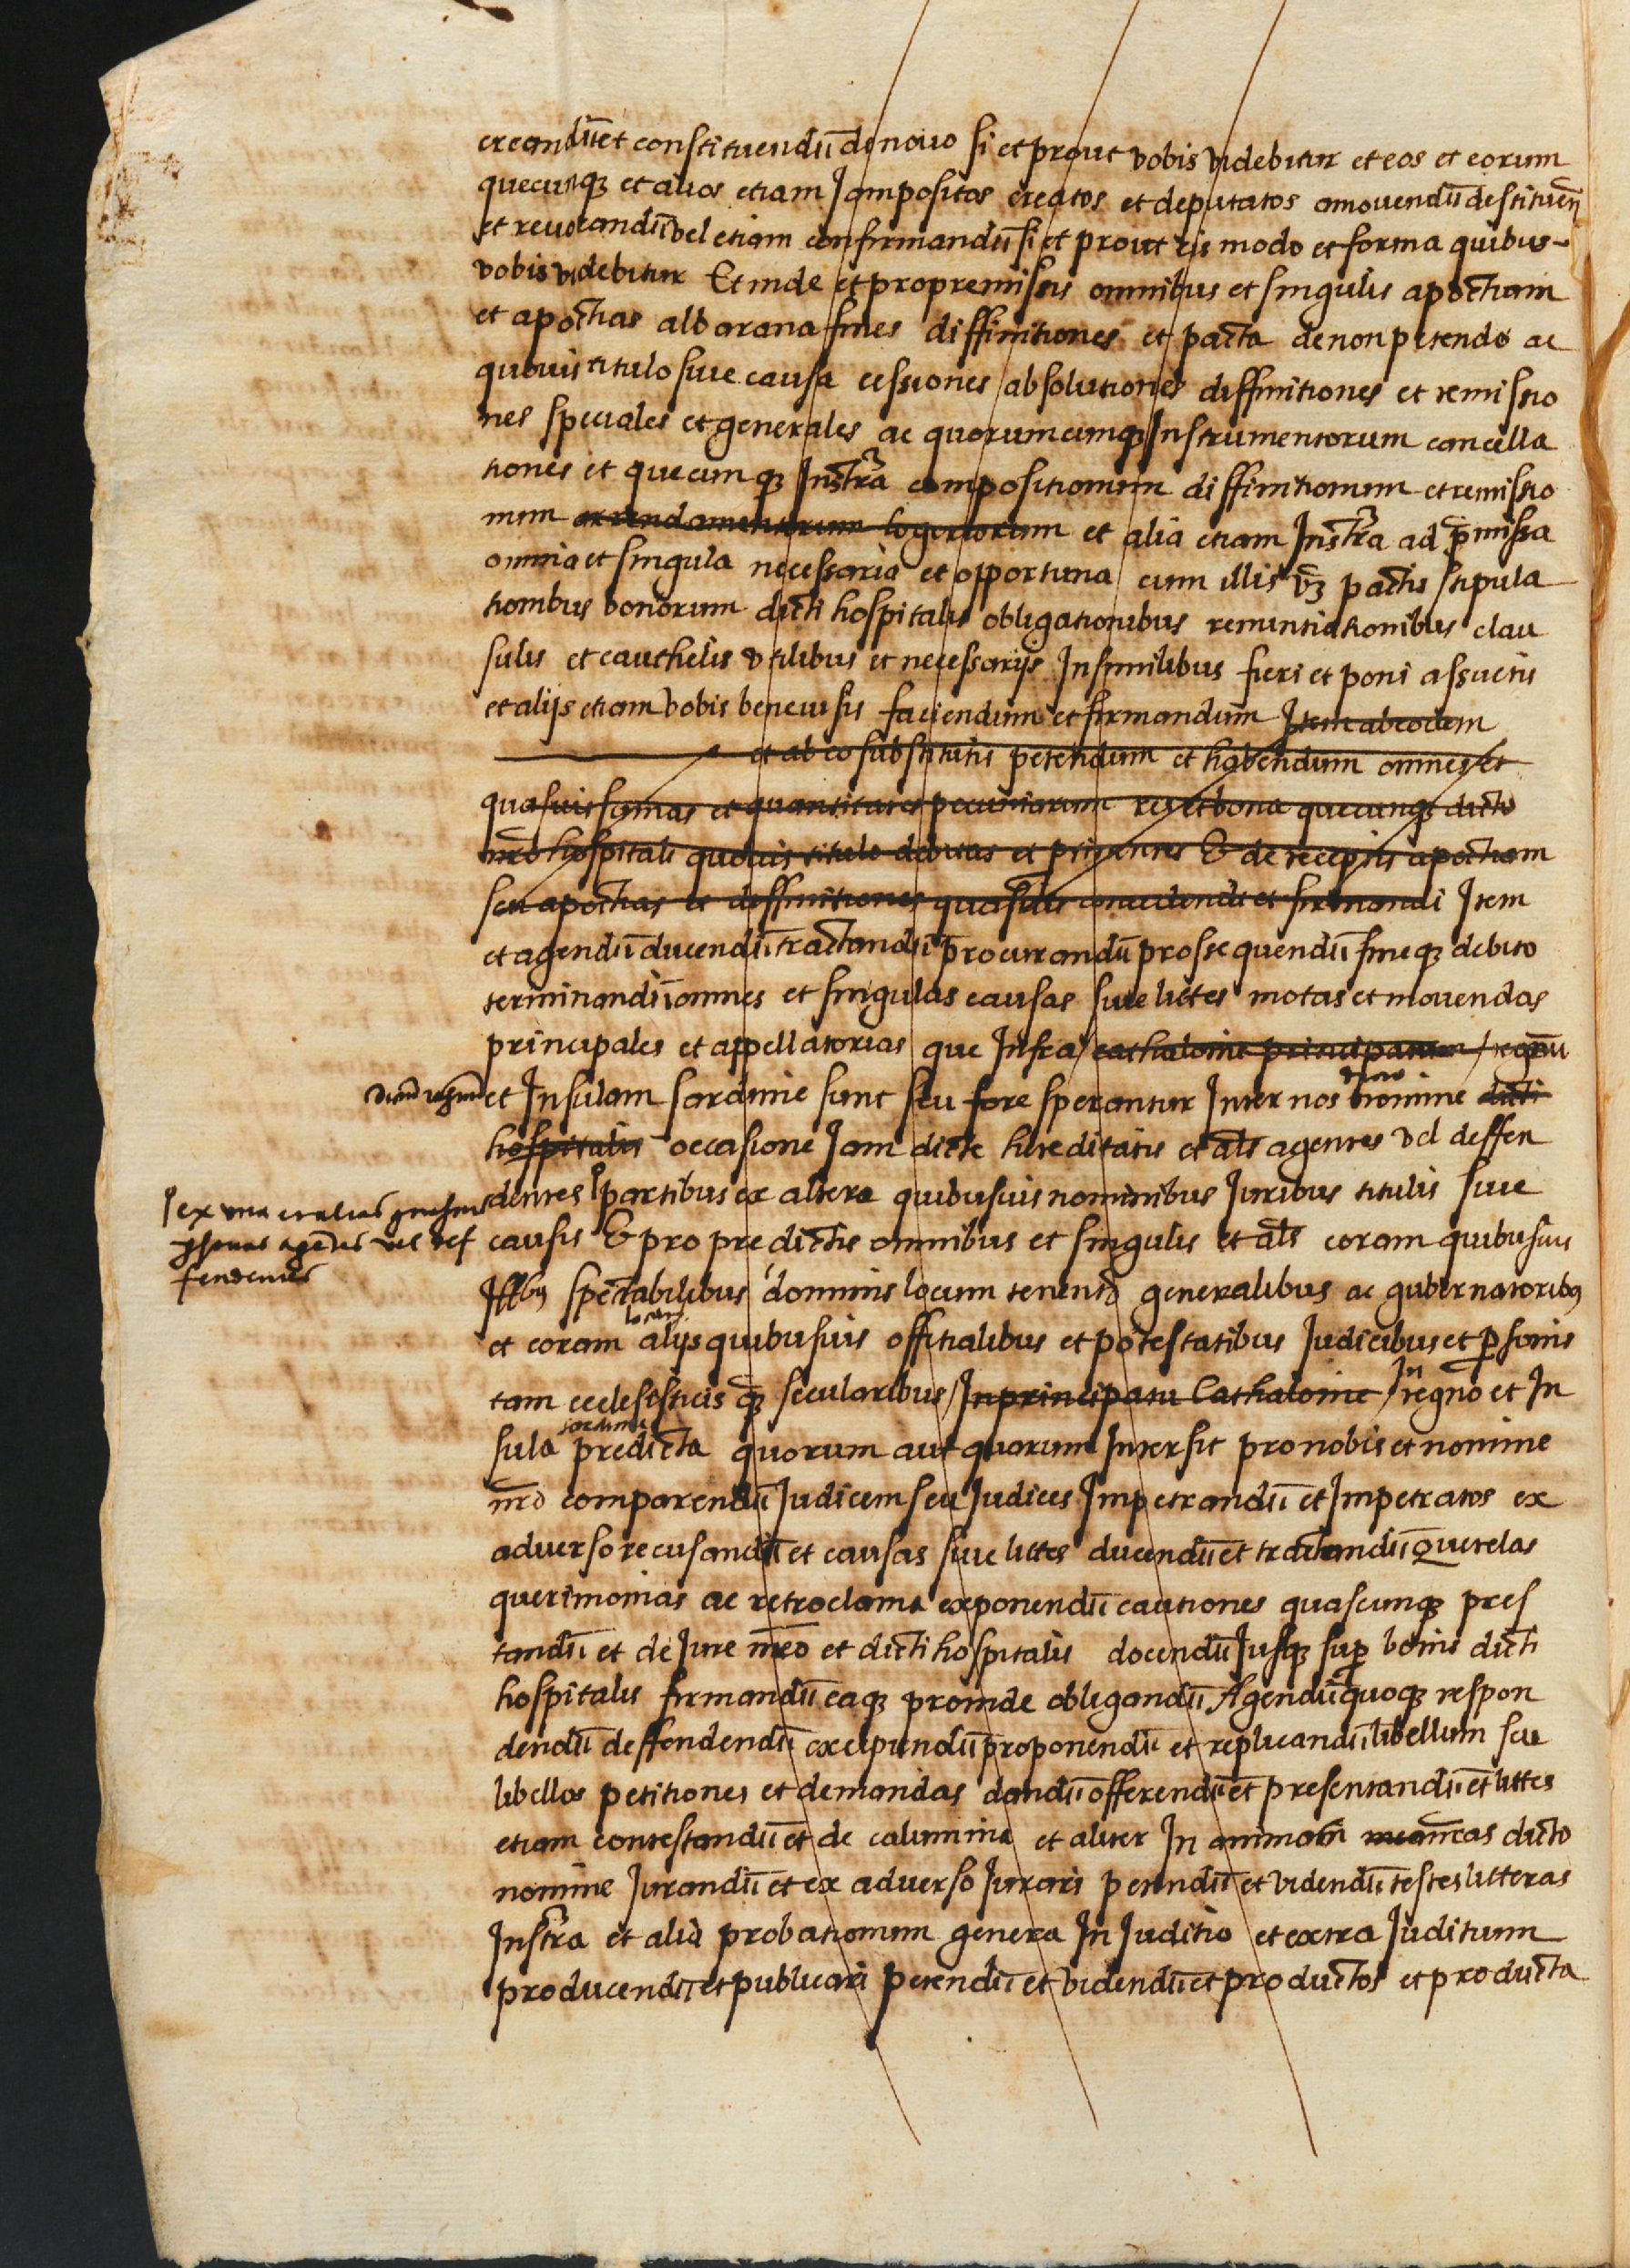 creandū et constituendū de novo si et prout vobis videbitur et eos et eorum
quecunqȝ et alios etiam Jam positos creatos et deputatos amovendū destituen̄
et revocandū vel etiam confirmandū si et prout eis modo et forma quibus
vobis videbitur Et inde et pro premissis omnibus et singulis apocham
et apochas albarana fines diffinitiones et pacta de non petendo ac
quovis titulo sive causa cessiones absolutiones diffinitiones et remissio
nes speciales et generales ac quorumcumqȝ Instrumentorum cancella
tiones et quecumqȝ Instra compositionum diffinitionum et remissio
num arrendamentorum logeriorum et alia etiam Instra ad p̄missa
omnia et singula necessaria et opportuna cum illis vȝ pactis stipula
tionibus bonorum dicti hospitalis obligationibus renuntiationibus clau
sulis et cauthelis utilibus et necessarijs In similibus fieri et poni assuetis
et alijs etiam vobis benevisis faciendum et firmandum Item ab eodem
et ab eo substitutis petendum et habendum omnes et
quasvis sumas et quantitates pecuniarum res et bona quecunqȝ dicto
nr̄o hospitali quovis titulo debitas et pertinentes Et de receptis apocham
seu apochas et diffinitiones quasvis concedendi et firmandi Item
et agendū ducendū tractandū procurandū prossequendū fineqȝ debito
terminandū omnes et singulas causas sive littes motas et movendas
principales et appellatorias que Infra cathalonie principatum / regnū
dictū regnū et Insulam sardinie sunt seu fore sperantur Inter nos dicto nomine dicti
hospitalis occasione Jam dicte hereditatis et als agentes vel deffen
dentes partibus ex altera quibusvis nominibus Juribus titulis sive
ex una et alias
psonas agentes vel def
fendentes
causis Et pro predictis omnibus et singulis et als coram quibusvis
Illbȝ spectabilibus dominis locum tenentȝ generalibus ac gubernatoribȝ
et coram alijs quibusvis offitialibus et potestatibus Judicibus et psonis
tam ecclesisticis qȝ secularibus / In principatu Cathalonie / In regno et In
sula sardinie predicta quorum aut quarum Intersit pro nobis et nomine
nr̄o comparendū Judicem seu Judices Impetrandū et Impetratos ex
adverso recusandū et causas sive littes ducendū et tractandū Querelas
querimonias ac retroclama exponendū cautiones quascunqȝ pres
tandū et de Jure meo et dicti hospitalis docendū Jusqȝ sup bonis dicti
hospitalis firmandū eaqȝ proinde obligandū Agendū quoqȝ respon
dendū deffendendū excipiendū proponendū et replicandū libellum seu
libellos petitiones et demandas dandū offerendū et presentandū et littes
etiam contestandū et de calumnia et aliter In animam meas dicto
nomine Jurandū et ex adverso Jurari petendū et videndū testes litteras
Instra et alia probationum genera In Juditio et extra Juditium
producendū et publicari petendū et videndū et productos et producta